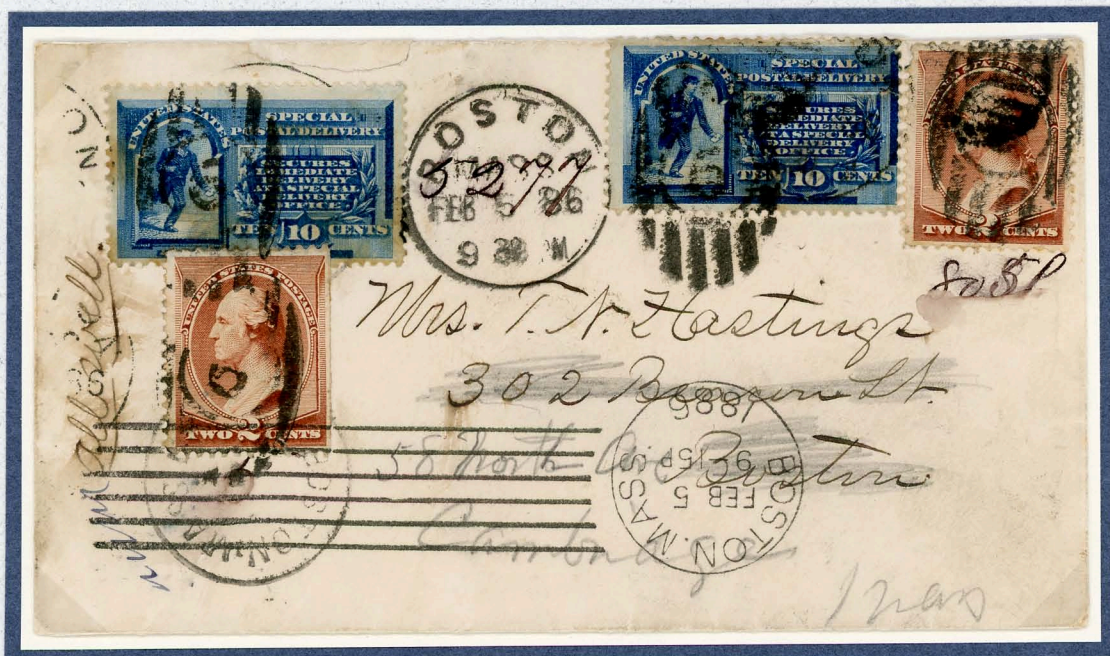 UNITED STATES
SPECIAL
POSTAL DELIVERY
SECURES
IMMEDIATE
DELIVERY
AT A SPECIAL
DELIVERY
OFFICE
TEN 10 CENTS
UNITED STATES
SPECIAL
POSTAL DELIVERY
SECURES
IMMEDIATE
DELIVERY
AT A SPECIAL
DELIVERY
OFFICE
TEN 10 CENTS
TWO 2 CENTS
BOSTON
5277
FEB 5 86
9 30 M
UNITED STATES POSTAGE
TWO 2 CENTS
Mrs. T. N. Hastings
302 Beacon St.
Boston
58 North Ave
Cambridge
Mass
BOSTON. MASS
FEB 5
9 15 P
1886
BOSTON. MASS